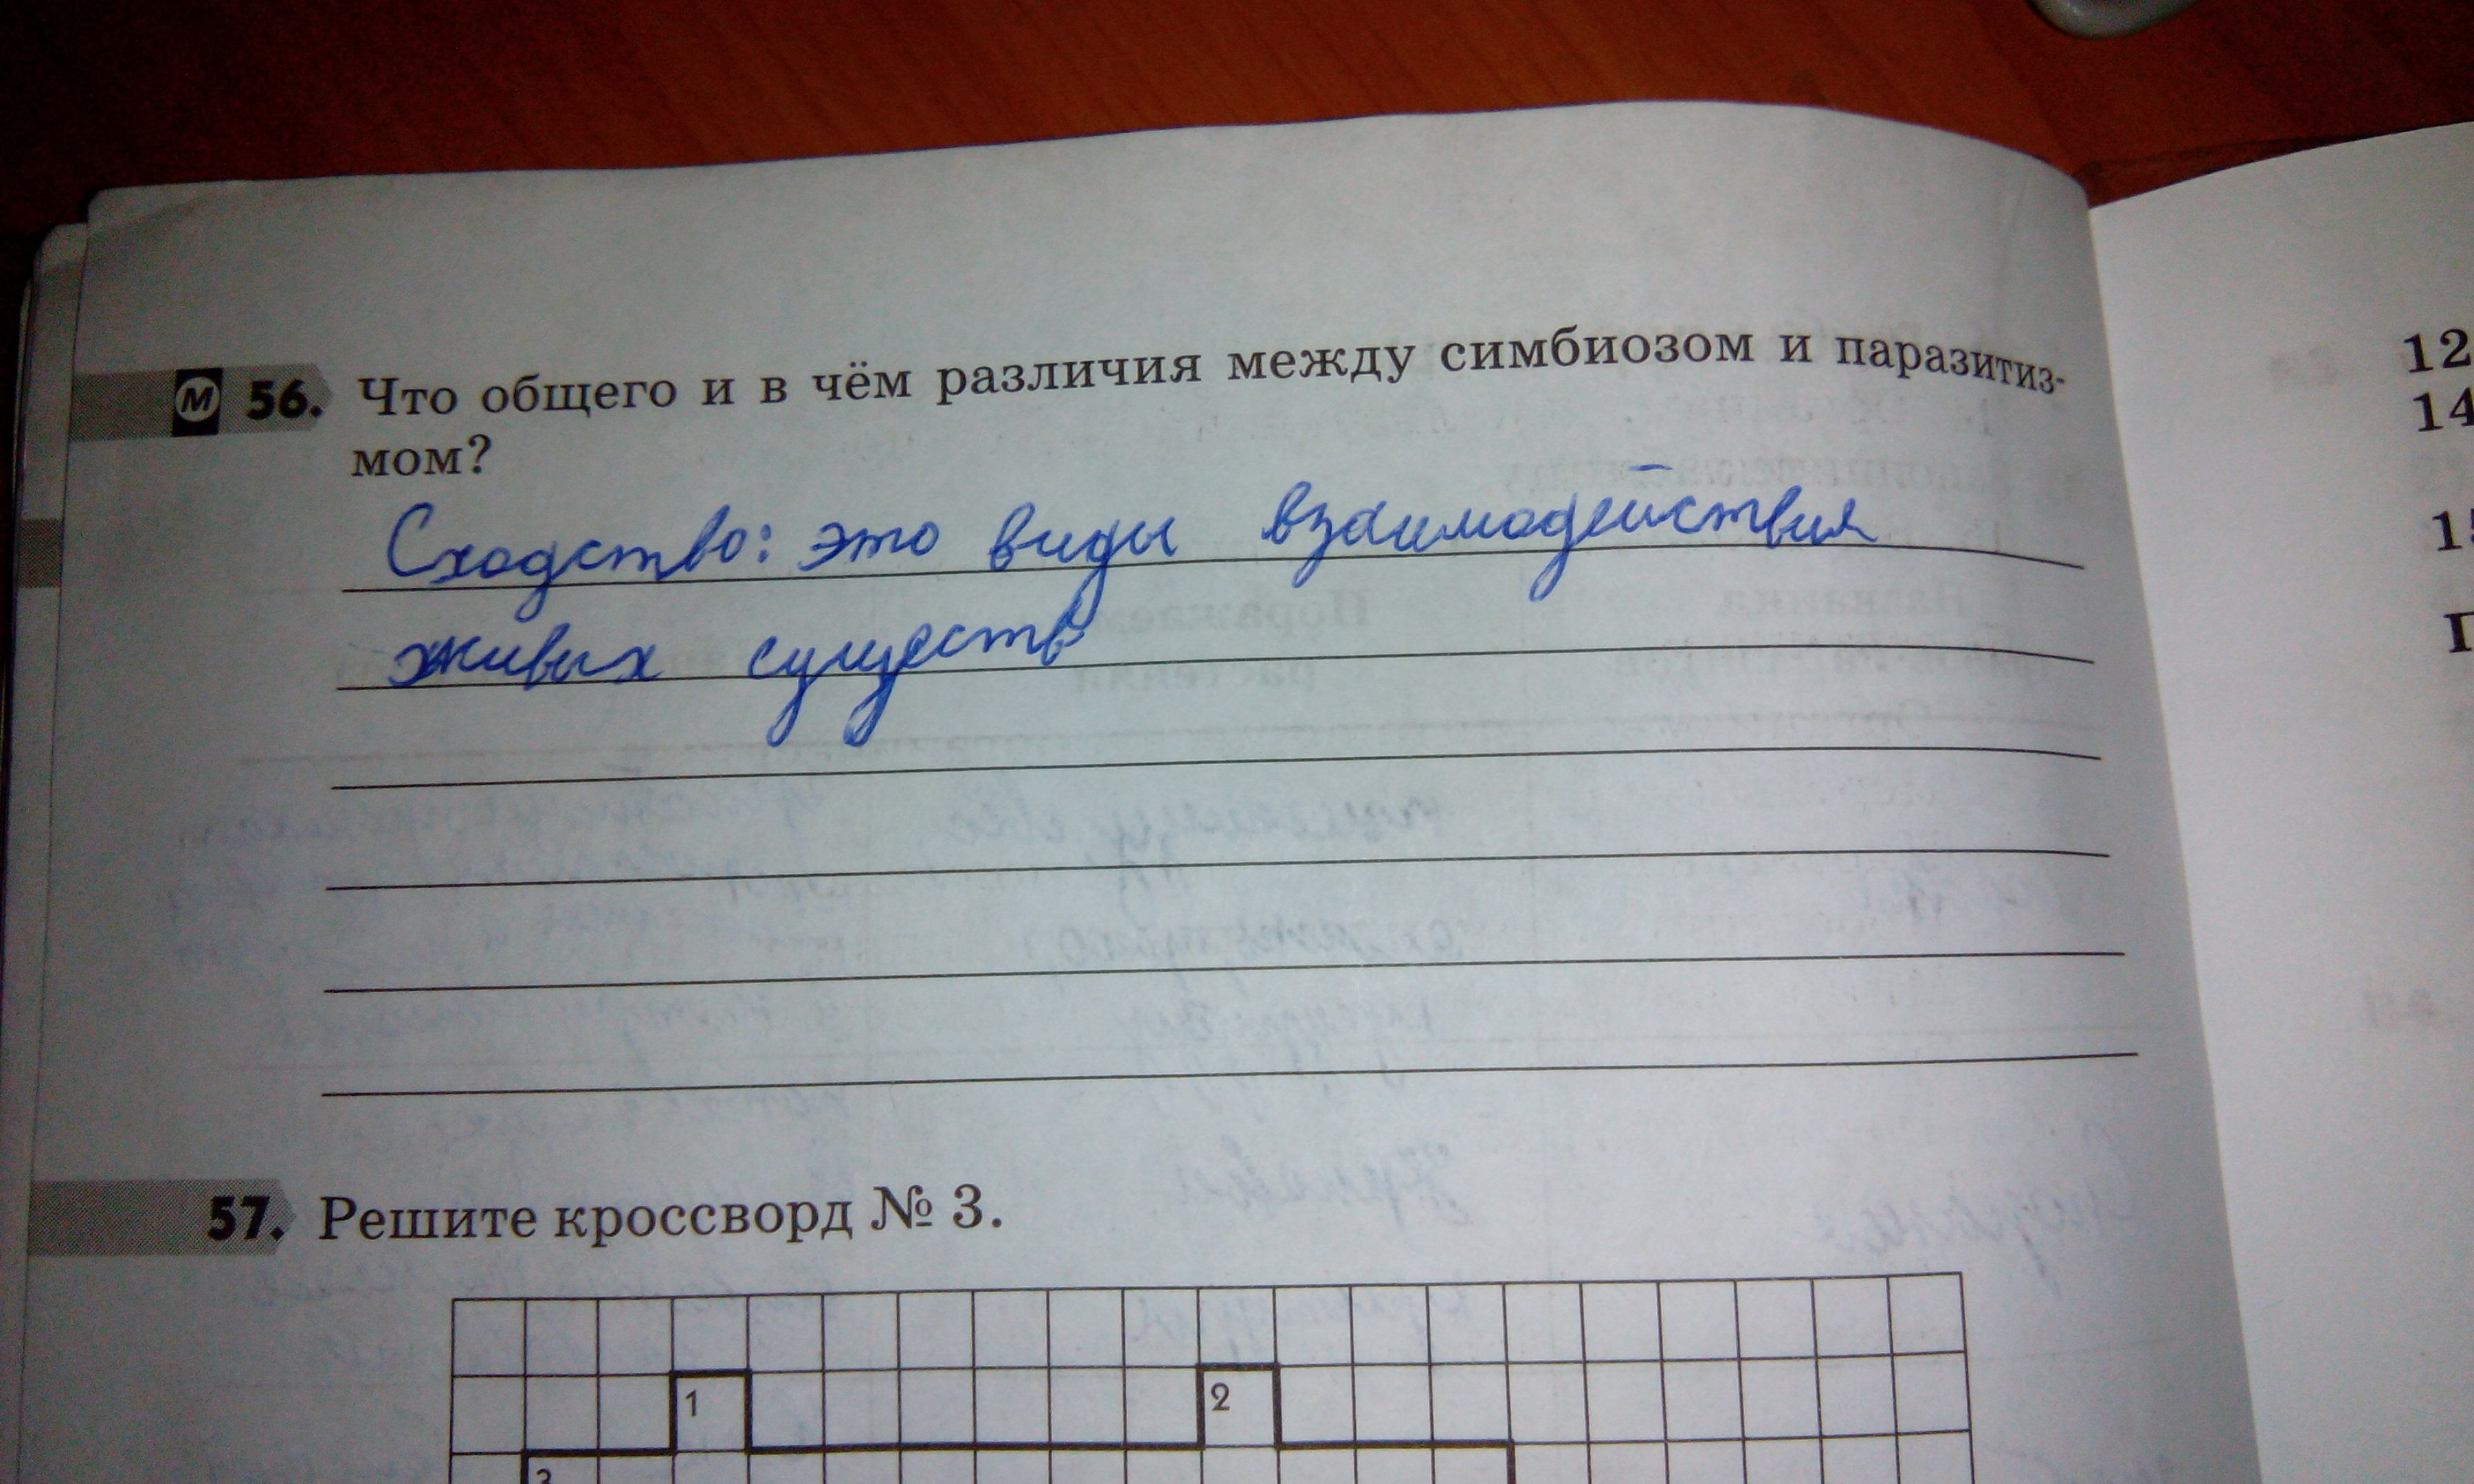 М 56. Что общего и в чём различия между симбиозом и паразитиз-
мом?
Сходство: это виды взаимодействия
живых существ
57. Решите кроссворд № 3.
1
2
3
12
14